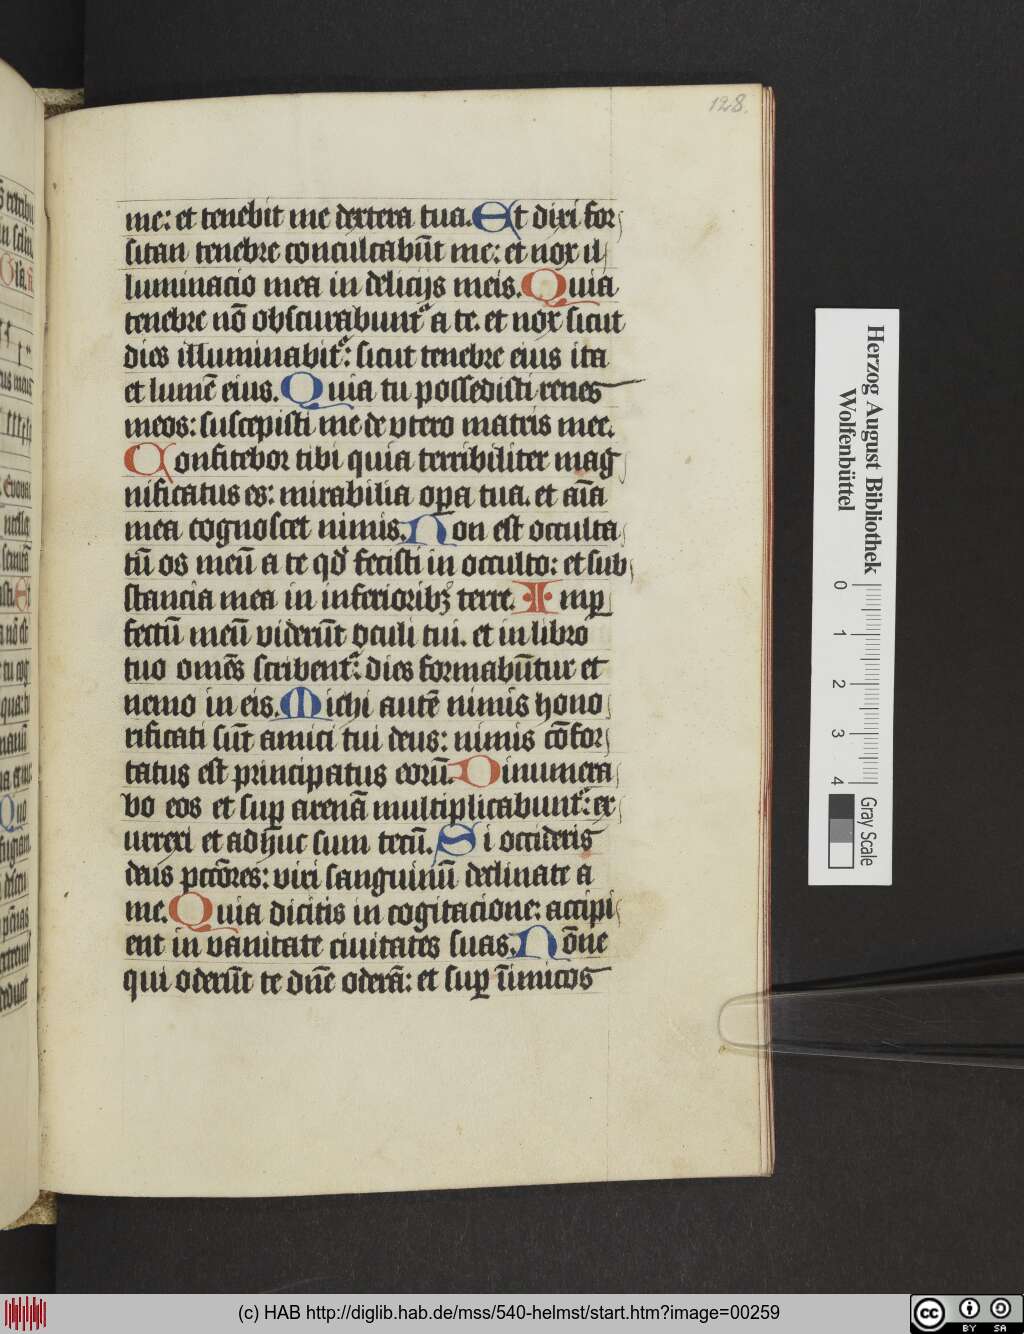 128.
me: et tenebit me dextera tua. Et dixi for
sitan tenebre conculcabūt me: et nox il
luminacio mea in delicijs meis. Quia
tenebre nō obscurabunt᷑ a te. et nox sicut
dies illuminabit᷑: sicut tenebre eius ita
et lumē eius. Quia tu possedisti renes
meos: suscepisti me de vtero matris mee.
Confitebor tibi quia terribiliter mag
nificatus es: mirabilia oꝑa tua. et aīa
mea cognoscet nimis. Non est occulta
tū os meū a te qd̓ fecisti in occulto: et sub
stancia mea in inferioribꝫ terre. Imꝑ
fectū meū viderūt oculi tui. et in libro
tuo om̄es scribent᷑: dies formabūtur et
nemo in eis. Michi autē nimis hono
rificati sūt amici tui deus: nimis cōfor
tatus est principatus eorū. Dinumera
bo eos et suꝑ arenā multiplicabunt᷑: ex
urrexi et adhuc sum tecū. Si occideris
deus pctōres: viri sanguinū declinate a
me. Quia dicitis in cogitacione: accipi
ent in vanitate ciuitates suas. Nōne
qui oderūt te dn̄e oderā: et suꝑ īimicos
Herzog August Bibliothek
Wolfenbüttel
0 1 2 3 4
Gray Scale
(c) HAB http://diglib.hab.de/mss/540-helmst/start.htm?image=00259
cc BY SA